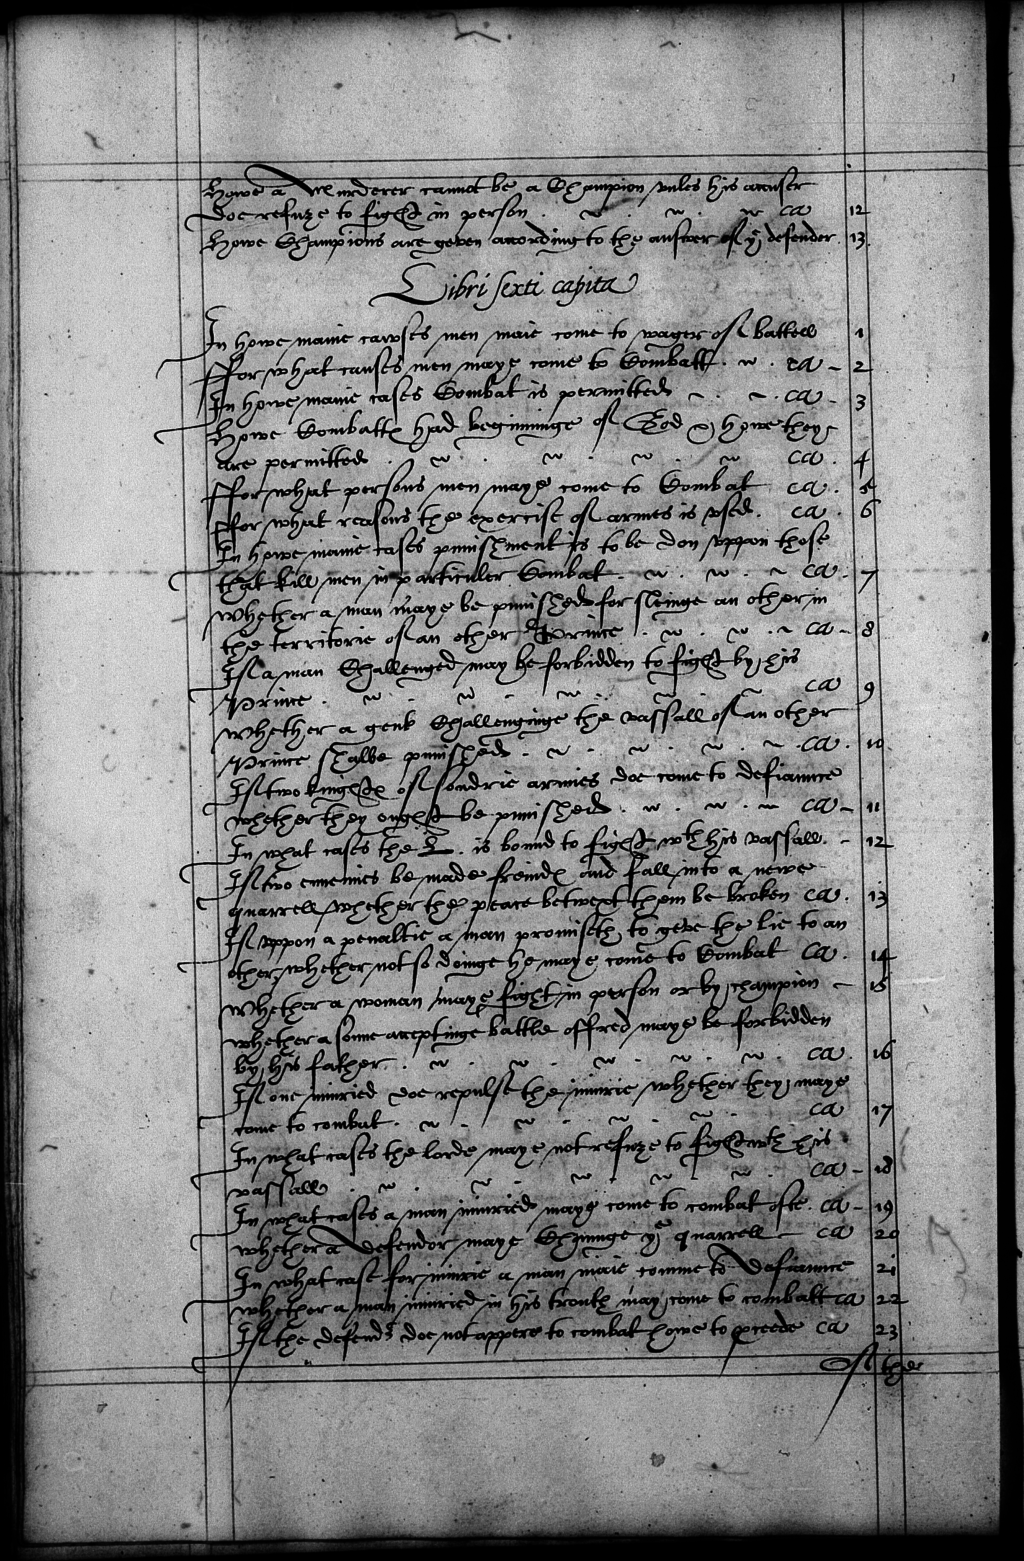 Howe a Murderer cannot be a Champion vnles his accuser
doe refuze to fight in person . ca 12
Howe Champions are geven according to the answer of ye defender. 13
Libri sexti capita
In howe manie cawses men maie come to wager of battell 1
ffor what causes men maye come to Combatt . ca - 2
In howe manie cases Combat is permitted . ca - 3
Howe Combattes had beginninge of God & howe they
are permitted . ca . 4
ffor what persons men maye come to Combat ca . 5
ffor what reasons the exercise of armes is vsed . ca . 6
In howe manie cases punishment is to be don vppon those
that kill men in particuler Combat . ca . 7
Whether a man maye be punished for sleinge an other in
the territorie of an other Prince . ca - 8
If a man Challenged may be forbidden to fight by his
Prince . ca 9
Whether a gent Challenginge the vassall of an other
Prince shalbe punished . ca . 10
If two knightes of sondrie armies doe come to defiaunce
whether they ought be punished . ca - 11
In what cases the L. is bound to fight wth his vassall . - 12
If two enemies be made freindes and fall into a newe
quarrell whether the peace betwext them be broken ca . 13
If vppon a penaltie a man promiseth to geve the lie to an
other, whether not so doinge he maye come to Combat ca . 14
Whether a woman maye fight in person or by champion - 15
Whether a sonne acceptinge battle offred maye be forbidden
by his father . ca . 16
If one iniuried doe repulse the iniurie whether they maye
come to combat . ca 17
In what cases the lorde maye not refuze to fight wth his
vassall . ca - 18
In what cases a man iniuried maye come to combat ofte . ca - 19
Whether a defendor maye Chaunge ye quarrell - ca 20
In what case for iniurie a man maie comme to Defiaunce 21
Whether a man iniuried in his trouth may come to combatt ca 22
If the defendr doe not appere to combat howe to proceede ca 23
Of the